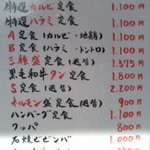 特選カルビ定食 1,100円
特選ハラミ定食 1,100円
A定食(カルビ・地鶏) 1,100円
B定食(ハラミ・トントロ) 1,100円
三種盛定食(週替) 1,375円
黒毛和牛タン定食 1,800円
S定食(週替) 2,200円
ホルモン盛定食(週替) 900円
ハンバーグ定食 1,100円
クッパ 800円
石焼ビビンバ 1,000円